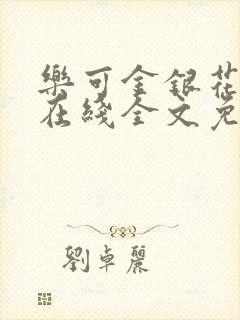 樂可金銀花
在綫全文免
劉卓麗